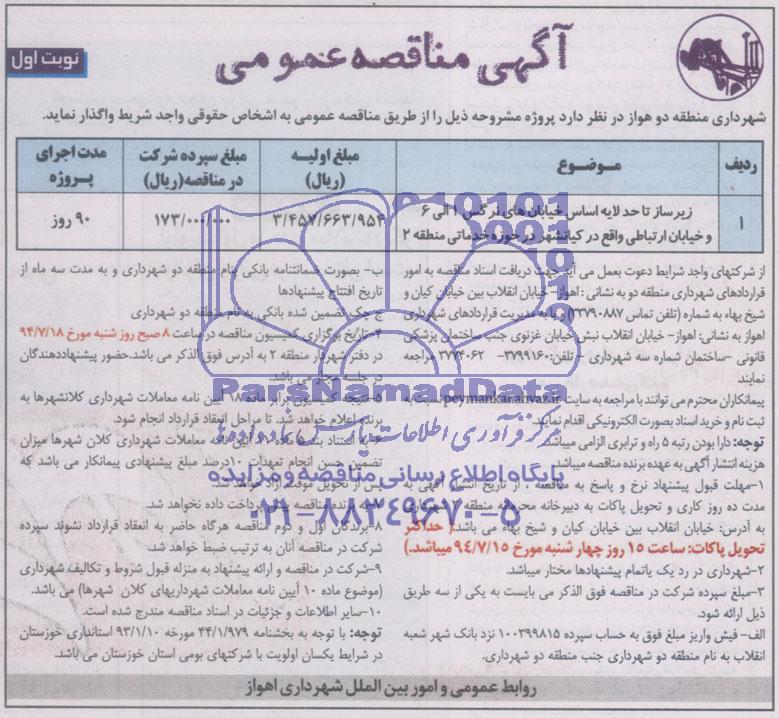 آگهی مناقصه عمومی
نوبت اول
شهرداری منطقه دو هواز در نظر دارد پروژه مشروحه ذیل را از طریق مناقصه عمومی به اشخاص حقوقی واجد شریط واگذار نماید.
ردیف موضوع مبلغ اولیه (ریال) مبلغ سپرده شرکت در مناقصه(ریال) مدت اجرای پروژه
۱ زیرساز تا حد لایه اساس خیابان های نرگس ۱ الی ۶ ۳/۴۵۷/۶۶۳/۹۵۴ ۱۷۳/۰۰۰/۰۰۰ ۹۰ روز
و خیابان ارتباطی واقع در کیانشهر در حوزه خدماتی منطقه ۲
از شرکتهای واجد شرایط دعوت بعمل می آید جهت دریافت اسناد مناقصه به امور
قراردادهای شهرداری منطقه دو به نشانی : اهواز- خیابان انقلاب بین خیابان کیان و
شیخ بهاء به شماره (تلفن تماس ۳۷۹۰۸۸۷) و یا به مدیریت قراردادهای شهرداری
اهواز به نشانی: اهواز- خیابان انقلاب نبش خیابان غزنوی جنب ساختمان پزشکی
قانونی -ساختمان شماره سه شهرداری - تلفن: ۳۷۹۹۱۶۰- ۳۷۷۴۰۶۲ مراجعه
نمایند
پیمانکاران محترم می توانند با مراجعه به سایت peymankar.ahvaz.ir نسبت به
ثبت نام و خرید اسناد بصورت الکترونیکی اقدام نمایند.
توجه: دارا بودن رتبه ۵ راه و ترابری الزامی میباشد.
هزینه انتشار آگهی به عهده برنده مناقصه میباشد.
۱-مهلت قبول پیشنهاد نرخ و پاسخ به مناقصه ، از تاریخ انتشار آگهی به
مدت ده روز کاری و تحویل پاکات به دبیرخانه محرمانه منطقه ۲ شهرداری
به آدرس: خیابان انقلاب بین خیابان کیان و شیخ بهاء می باشد.( حداکثر
تحویل پاکات: ساعت ۱۵ روز چهار شنبه مورخ ۹۴/۷/۱۵ میباشد.)
۲-شهرداری در رد یک یاتمام پیشنهادها مختار میباشد.
۳-مبلغ سپرده شرکت در مناقصه فوق الذکر می بایست به یکی از سه طریق
ذیل ارائه شود.
الف- فیش واریز مبلغ فوق به حساب سپرده ۱۰۰۳۹۹۸۱۵ نزد بانک شهر شعبه
انقلاب به نام منطقه دو شهرداری جنب منطقه دو شهرداری.
ب- بصورت ضمانتنامه بانکی بنام منطقه دو شهرداری و به مدت سه ماه از
تاریخ افتتاح پیشنهادها
ج چک تضمین شده بانکی به نام منطقه دو شهرداری
۴-تاریخ برگزاری کمیسیون مناقصه در ساعت ۸ صبح روز شنبه مورخ ۹۴/۷/۱۸
در دفتر شهردار منطقه ۲ به آدرس فوق الذکر می باشد.حضور پیشنهاددهندگان
در جلسه مجاز می باشد.
۵-نتیجه کمیسیون برابر ماده ۱۸ آیین نامه معاملات شهرداری کلانشهرها به
برنده اعلام خواهد شد. تا مراحل انعقاد قرارداد انجام شود.
۶-به استناد بند ماده آیین نامه معاملات شهرداری کلان شهرها میزان
تضمین حسن انجام تعهدات ۱۰درصد مبلغ پیشنهادی پیمانکار می باشد که
پس از تحویل موقت آزاد خواهد شد.
۷- به برنده مناقصه پیش پرداخت داده نخواهد شد.
۸-برندگان اول و دوم مناقصه هرگاه حاضر به انعقاد قرارداد نشوند سپرده
شرکت در مناقصه آنان به ترتیب ضبط خواهد شد.
۹-شرکت در مناقصه و ارائه پیشنهاد به منزله قبول شروط و تکالیف شهرداری
(موضوع ماده ۱۰ آیین نامه معاملات شهرداریهای کلان شهرها) می باشد.
۱۰-سایر اطلاعات و جزئیات در اسناد مناقصه مندرج شده است.
توجه: با توجه به بخشنامه ۴۴/۱/۹۷۹ مورخه ۹۳/۱/۱۰ استانداری خوزستان
در شرایط یکسان اولویت با شرکتهای بومی استان خوزستان می باشد.
روابط عمومی و امور بین الملل شهرداری اهواز
ParsNamadData
مرکز فرآوری اطلاعات پارس نماد داده ها
پایگاه اطلاع رسانی مناقصه و مزایده
۰۲۱-۸۸۳۴۹۶۷۰-۵